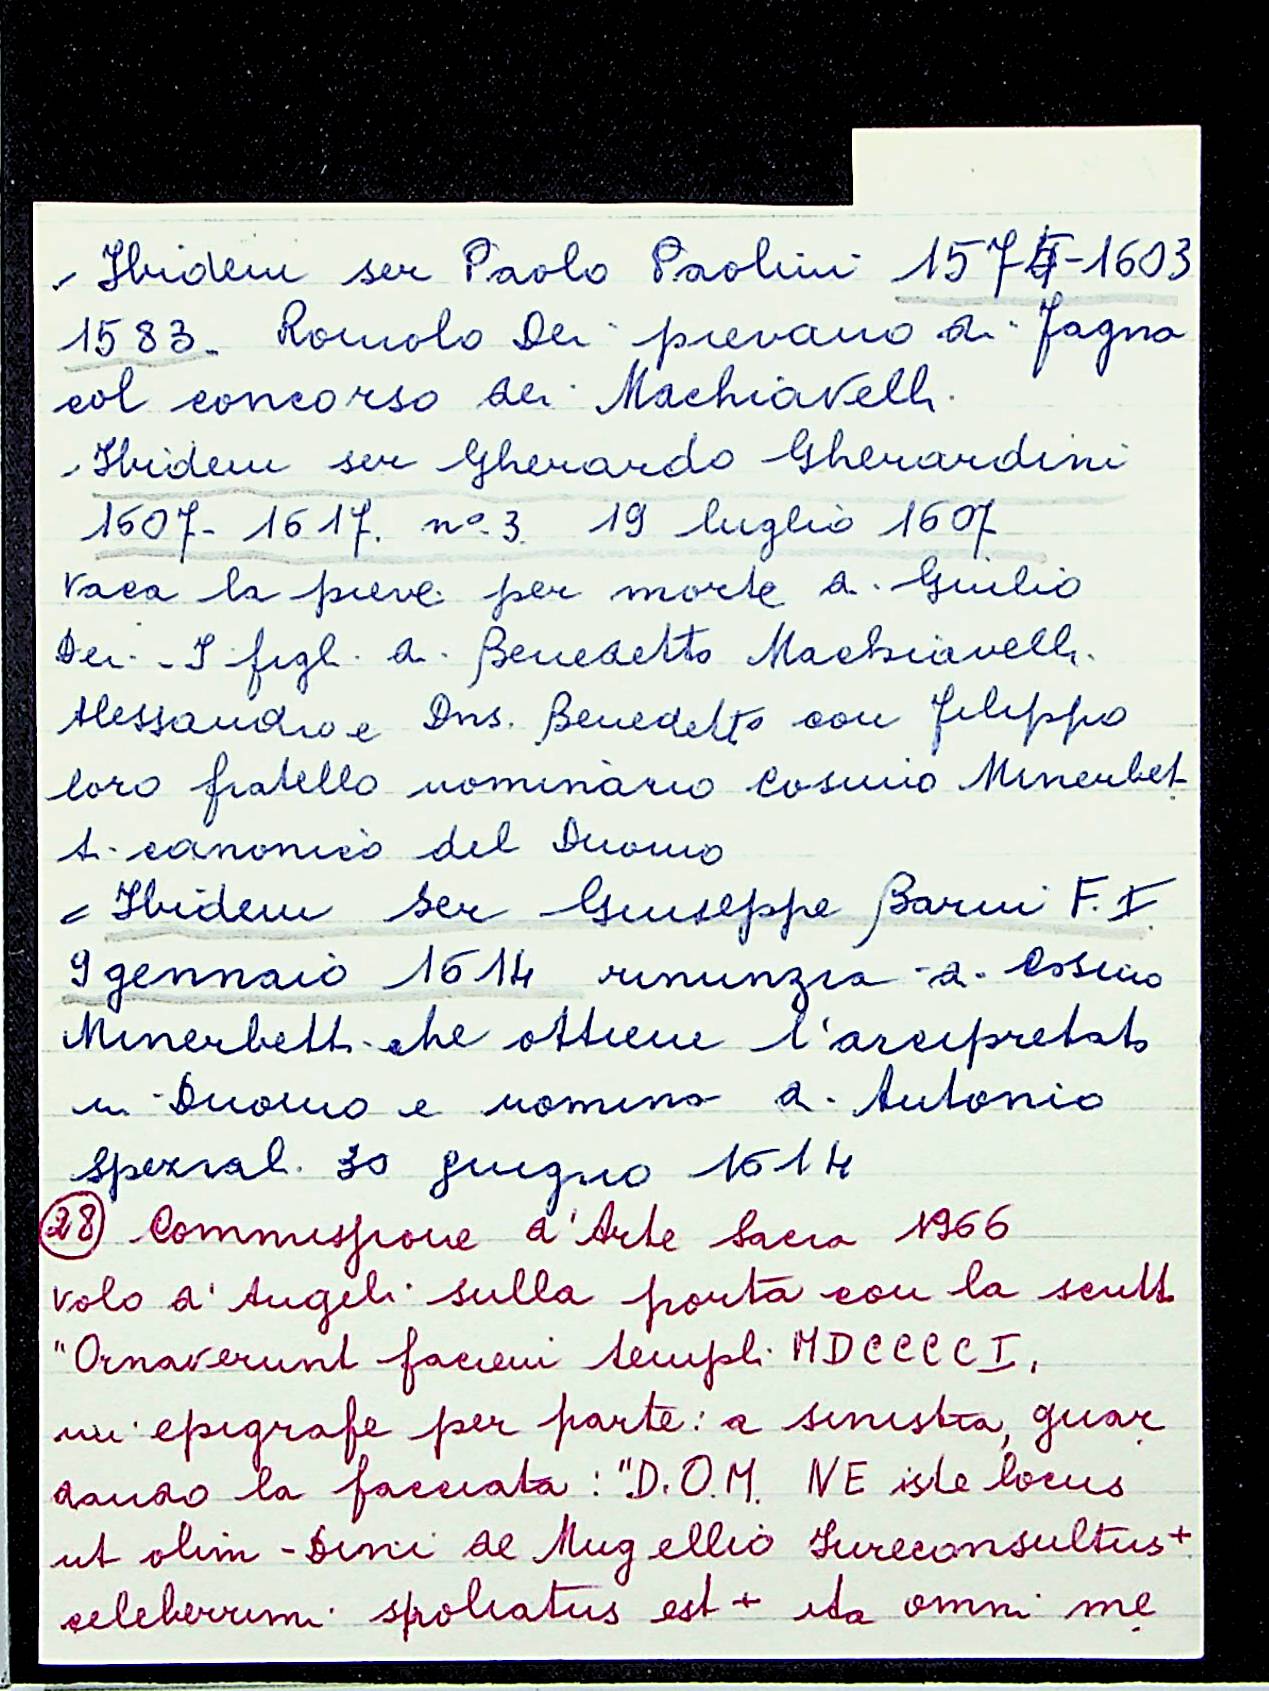 - Ibidem ser Paolo Paolini 1575-1603
1583. Romolo Dei pievano di Fagna
col concorso dei Machiavelli.
- Ibidem ser Gherardo Gherardini
1607-1617. nº 3 19 luglio 1607
vaca la pieve per morte di Giulio
Dei - I figli di Benedetto Machiavelli.
Alessandro e Dns. Benedetto con Filippo
loro fratello nominàrio Cosimo Minerbet
ti canonico del Duomo
= Ibidem Ser Giuseppe Barni F. I
9 gennaio 1614 rinunzia di Cosimo
Minerbetti che ottiene l'arcipretato
in Duomo e nomina di Antonio
Speziali 30 giugno 1614
28 Commissione d'Arte Sacra 1966
volo d'Angeli sulla porta con la scritt.
"Ornaverunt faciem templi MDCCCCI,
un epigrafe per parte: a sinistra, guar
dando la facciata: "D.O.M. NE iste locus
ut olim - Dini de Mugellio Jureconsultus +
celeberrimi spoliatus est + ita omni me